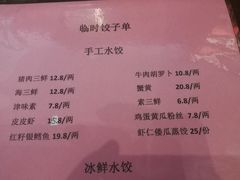 临时饺子单
手工水饺
猪肉三鲜 12.8/两
牛肉胡萝卜 10.8/两
海三鲜 12.8/两
蟹黄 20.8/两
津味素 7.8/两
素三鲜 6.8/两
皮皮虾 15.8/两
鸡蛋黄瓜粉丝 7.8/两
红籽银鳕鱼 19.8/两
虾仁倭瓜蒸饺 25/份
冰鲜水饺